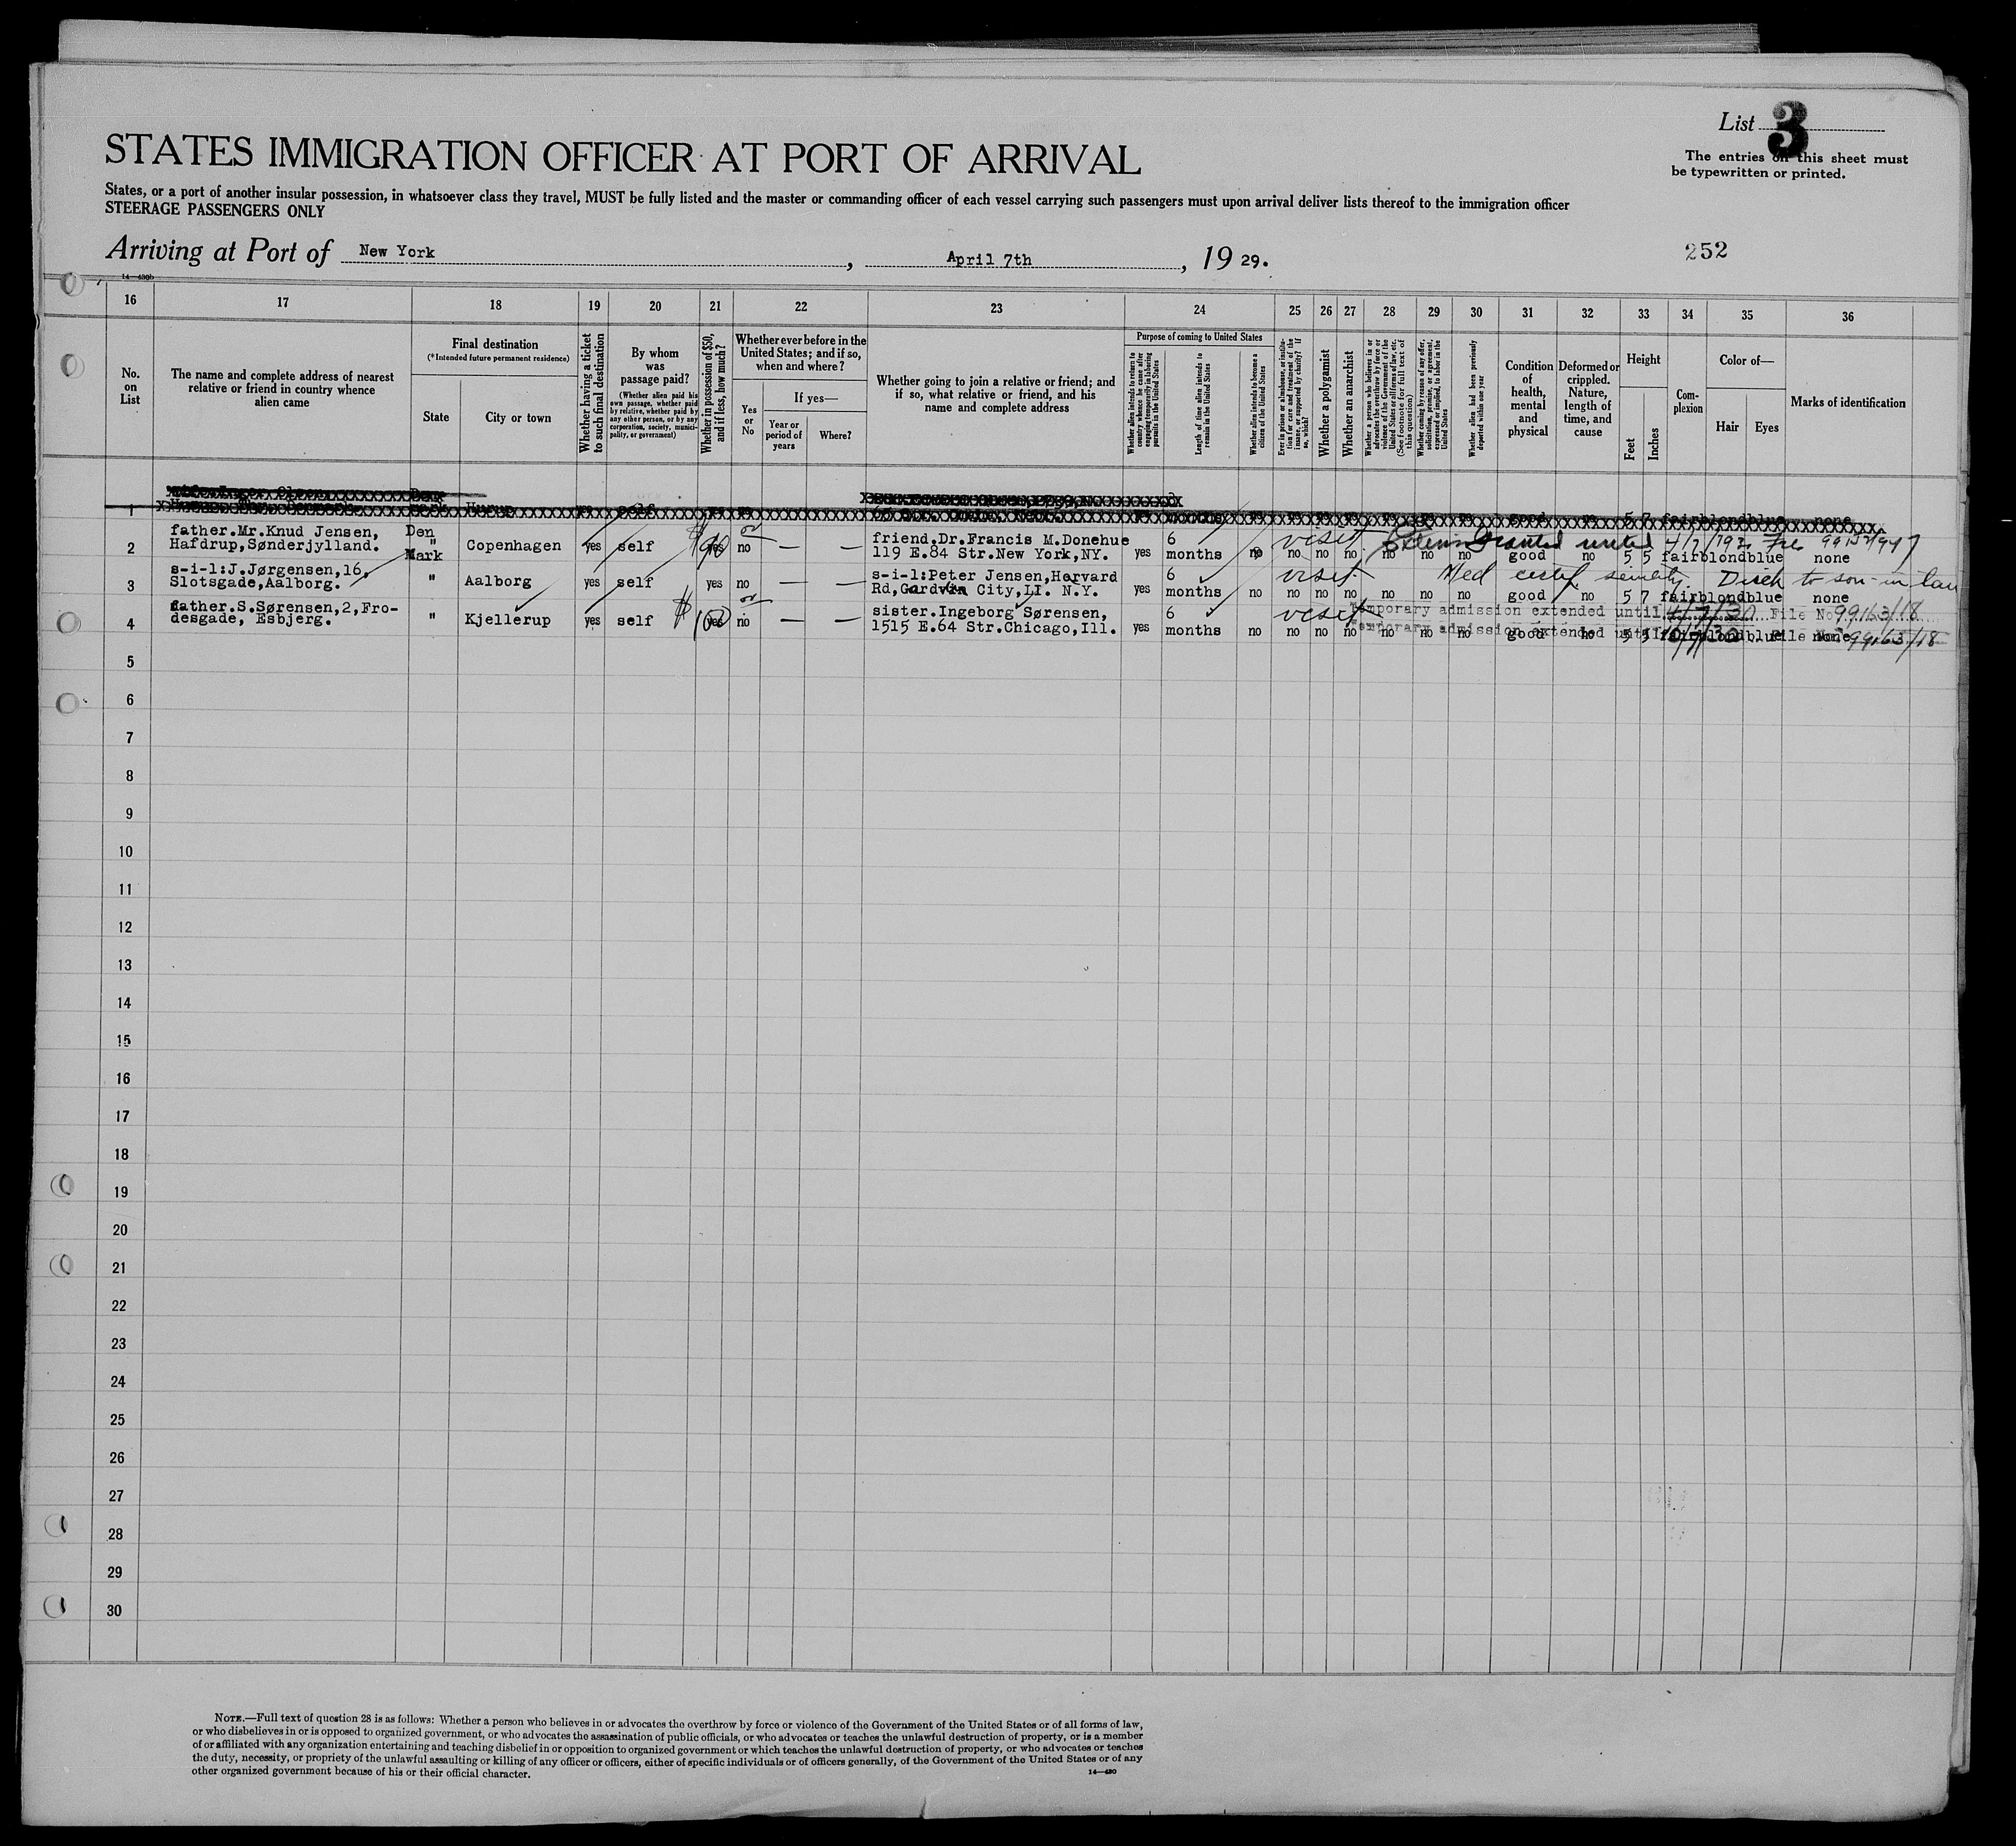 List 3
The entries on this sheet must
be typewritten or printed.
STATES IMMIGRATION OFFICER AT PORT OF ARRIVAL
States, or a port of another insular possession, in whatsoever class they travel, MUST be fully listed and the master or commanding officer of each vessel carrying such passengers must upon arrival deliver lists thereof to the immigration officer
STEERAGE PASSENGERS ONLY
Arriving at Port of New York, April 7th, 19 29.
252
14—430b
16 17 18 19 20 21 22 23 24 25 26 27 28 29 30 31 32 33 34 35 36
No.
on
List
The name and complete address of nearest
relative or friend in country whence
alien came
Final destination
(*Intended future permanent residence)
State
City or town
Whether having a ticket
to such final destination
By whom
was
passage paid?
(Whether alien paid his
own passage, whether paid
by relative, whether paid by
any other person, or by any
corporation, society, munici-
pality, or government)
Whether in possession of $50,
and if less, how much?
Whether ever before in the
United States; and if so,
when and where?
Yes
or
No
If yes—
Year or
period of
years
Where?
Whether going to join a relative or friend; and
if so, what relative or friend, and his
name and complete address
Purpose of coming to United States
Whether alien intends to return to
country whence he came after
engaging temporarily in laboring
pursuits in the United States
Length of time alien intends to
remain in the United States
Whether alien intends to become a
citizen of the United States
Ever in prison or almshouse, or institu-
tion for care and treatment of the
insane, or supported by charity? If
so, which?
Whether a polygamist
Whether an anarchist
Whether a person who believes in or
advocates the overthrow by force or
violence of the Government of the
United States or all forms of law, etc.
(See footnote for full text of
this question)
Whether coming by reason of any offer,
solicitation, promise, or agreement,
expressed or implied, to labor in the
United States
Whether alien had been previously
deported within one year
Condition
of
health,
mental
and
physical
Deformed or
crippled.
Nature,
length of
time, and
cause
Height
Feet
Inches
Com-
plexion
Color of—
Hair
Eyes
Marks of identification
1 yes self months good no 5 7 fair blond blue none
2 father.Mr.Knud Jensen, Den
Hafdrup,Sønderjylland. Mark " Copenhagen yes self $90 yes no — — friend.Dr.Francis M.Donehue
119 E.84 Str.New York,NY. yes 6 months no no no no no no no good no 5 5 fair blond blue none
visit granted until
3 s-i-l:J.Jørgensen,16,
Slotsgade,Aalborg. " Aalborg yes self yes no — — s-i-l:Peter Jensen,Harvard
Rd,Garden City,LI. N.Y. yes 6 months no no no no no no no good no 5 7 fair blond blue none
visit Med certif senility. Disch to son-in law
4 father.S.Sørensen,2,Fro-
desgade, Esbjerg. " Kjellerup yes self $100 yes no — — sister.Ingeborg Sørensen,
1515 E.64 Str.Chicago,Ill. yes 6 months no no no no no no no good no 5 5 fair blond blue none
visit Temporary admission extended until 4/7/30 File No 99163/18
Temporary admission extended until File No 99163/18
5
6
7
8
9
10
11
12
13
14
15
16
17
18
19
20
21
22
23
24
25
26
27
28
29
30
NOTE.—Full text of question 28 is as follows: Whether a person who believes in or advocates the overthrow by force or violence of the Government of the United States or of all forms of law,
or who disbelieves in or is opposed to organized government, or who advocates the assassination of public officials, or who advocates or teaches the unlawful destruction of property, or is a member
of or affiliated with any organization entertaining and teaching disbelief in or opposition to organized government or which teaches the unlawful destruction of property, or who advocates or teaches
the duty, necessity, or propriety of the unlawful assaulting or killing of any officer or officers, either of specific individuals or of officers generally, of the Government of the United States or of any
other organized government because of his or their official character.
14—430